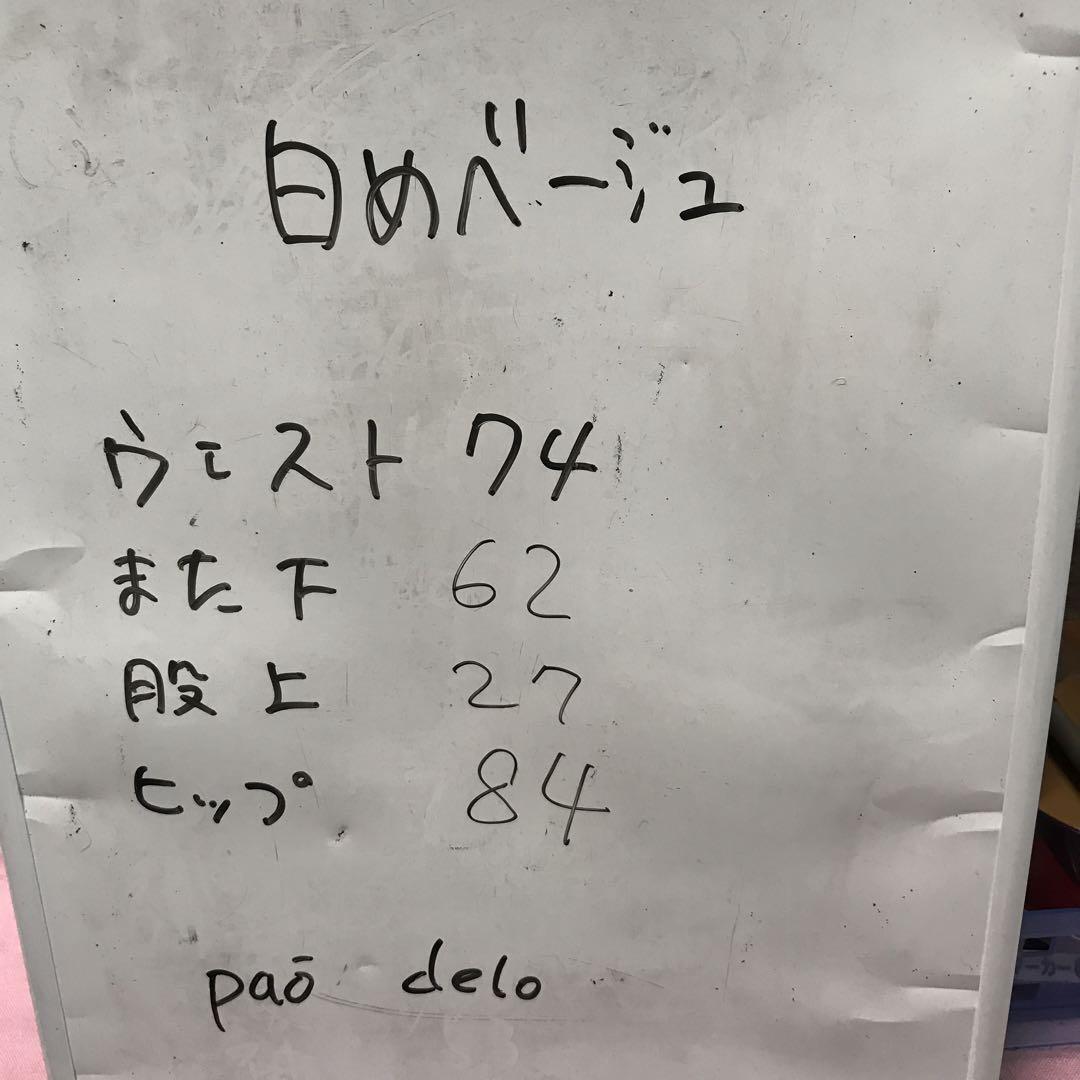 白めベージュ
ウエスト 74
また下 62
股上 27
ヒップ 84
paō delo
ーカー